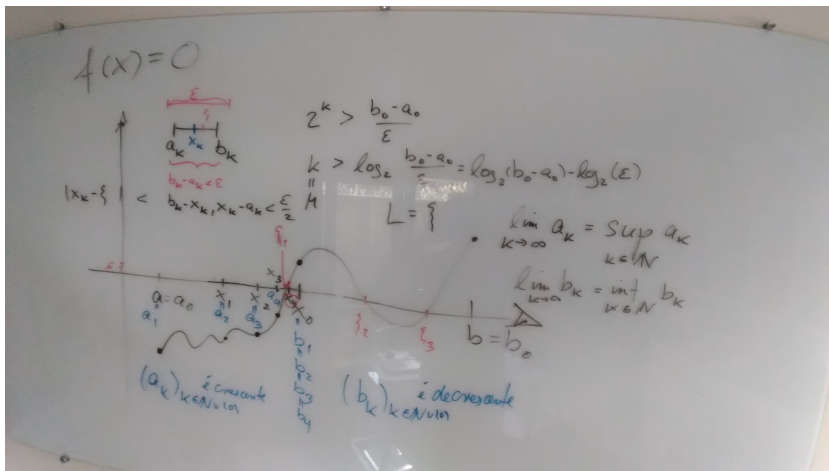 f(x)=0
ε
ξ
a_k x_k b_k
b_k-a_k<ε
|x_k-ξ| < b_k-x_k, x_k-a_k < ε/2
2^k > (b_0-a_0)/ε
k > log_2 (b_0-a_0)/ε = log_2(b_0-a_0)-log_2(ε)
=
M
L = ξ
lim k→∞ a_k = sup k∈ℕ a_k
lim k→∞ b_k = inf k∈ℕ b_k
ξ_1
x_3
a=a_0 x_1 x_2 a_4 x_0
a_1 a_2 a_3
ξ_2 ξ_3
b=b_0
b_1
=
b_2
=
b_3
=
b_4
(a_k)_{k∈ℕ∪{0}} é crescente
(b_k)_{k∈ℕ∪{0}} é decrescente